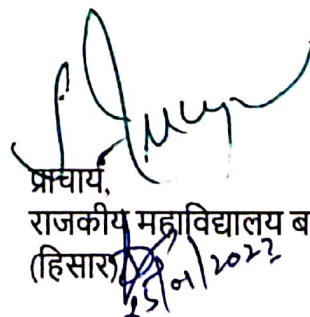 प्राचार्य,
राजकीय महाविद्यालय ब
(हिसार)
25/01/2023